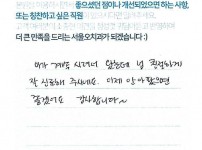 좋으셨던 점이나 개선되었으면 하는 사항,
또는 칭찬하고 싶은 직원
더 큰 만족을 드리는 서울오치과가 되겠습니다 :)
이가 계속 시려서 왔는데 넘 친절하게
잘 치료해 주셔서요. 이제 안아팠으면
좋겠어요 감사합니다~